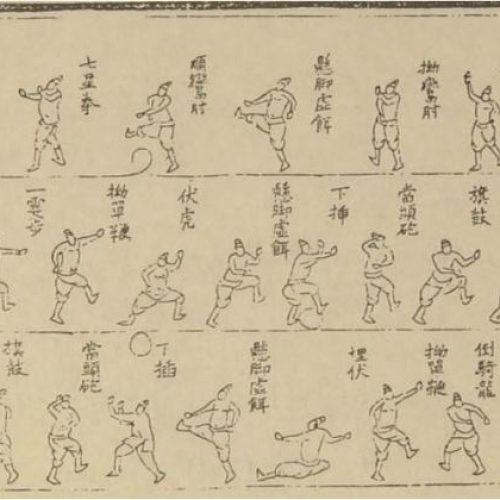 拗鸞肘
懸脚虛餌
順鸞肘
七星拳
旗鼓
當頭砲
下揷
懸脚虛餌
伏虎
拗單鞭
一霎步
倒騎龍
拗單鞭
埋伏
懸脚虛餌
下插
當頭砲
旗鼓